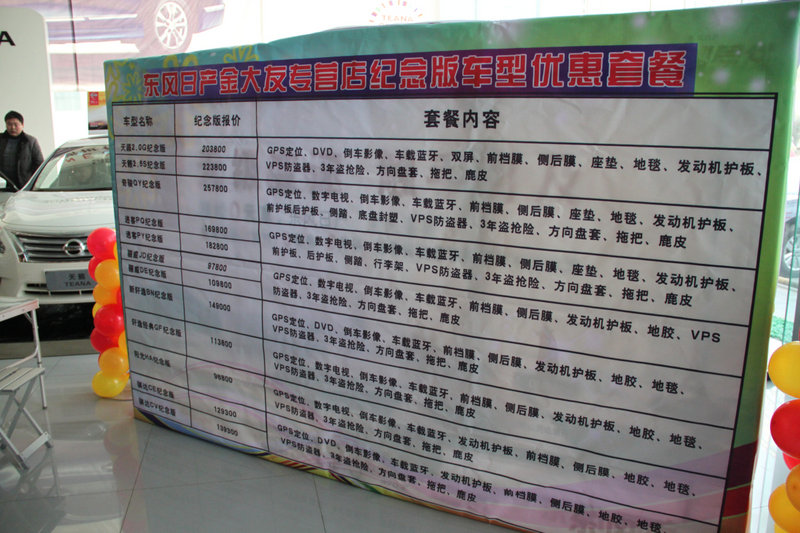 TEANA
东风日产金大友专营店纪念版车型优惠套餐
车型名称 纪念版报价 套餐内容
天籁2.0G纪念版 203800
天籁2.5S纪念版 223800
GPS定位、DVD、倒车影像、车载蓝牙、双屏、前档膜、侧后膜、座垫、地毯、发动机护板、
VPS防盗器、3年盗抢险、方向盘套、拖把、鹿皮
奇骏QY纪念版 257800
GPS定位、数字电视、倒车影像、车载蓝牙、前档膜、侧后膜、座垫、地毯、发动机护板、
前护板后护板、侧踏、底盘封塑、VPS防盗器、3年盗抢险、方向盘套、拖把、鹿皮
逍客PQ纪念版 169800
逍客PY纪念版 182800
GPS定位、数字电视、倒车影像、车载蓝牙、前档膜、侧后膜、座垫、地毯、发动机护板、
前护板、后护板、侧踏、行李架、VPS防盗器、3年盗抢险、方向盘套、拖把、鹿皮
骊威JD纪念版 97800
骊威DE纪念版 109800
GPS定位、数字电视、倒车影像、车载蓝牙、前档膜、侧后膜、发动机护板、地胶、VPS
防盗器、3年盗抢险、方向盘套、拖把、鹿皮
新轩逸BN纪念版 149000
GPS定位、DVD、倒车影像、车载蓝牙、前档膜、侧后膜、发动机护板、地胶、地毯、
VPS防盗器、3年盗抢险、方向盘套、拖把、鹿皮
轩逸经典GF纪念版 113800
GPS定位、数字电视、倒车影像、车载蓝牙、前档膜、侧后膜、发动机护板、地胶、地毯、
VPS防盗器、3年盗抢险、方向盘套、拖把、鹿皮
阳光HA纪念版 96800
GPS定位、数字电视、倒车影像、车载蓝牙、发动机护板、前档膜、侧后膜、地胶、地毯、
VPS防盗器、3年盗抢险、方向盘套、拖把、鹿皮
骐达CE纪念版 129300
骐达CV纪念版 139300
GPS定位、DVD、倒车影像、车载蓝牙、发动机护板、前档膜、侧后膜、地胶、地毯、
VPS防盗器、3年盗抢险、方向盘套、拖把、鹿皮
天籁
TEANA